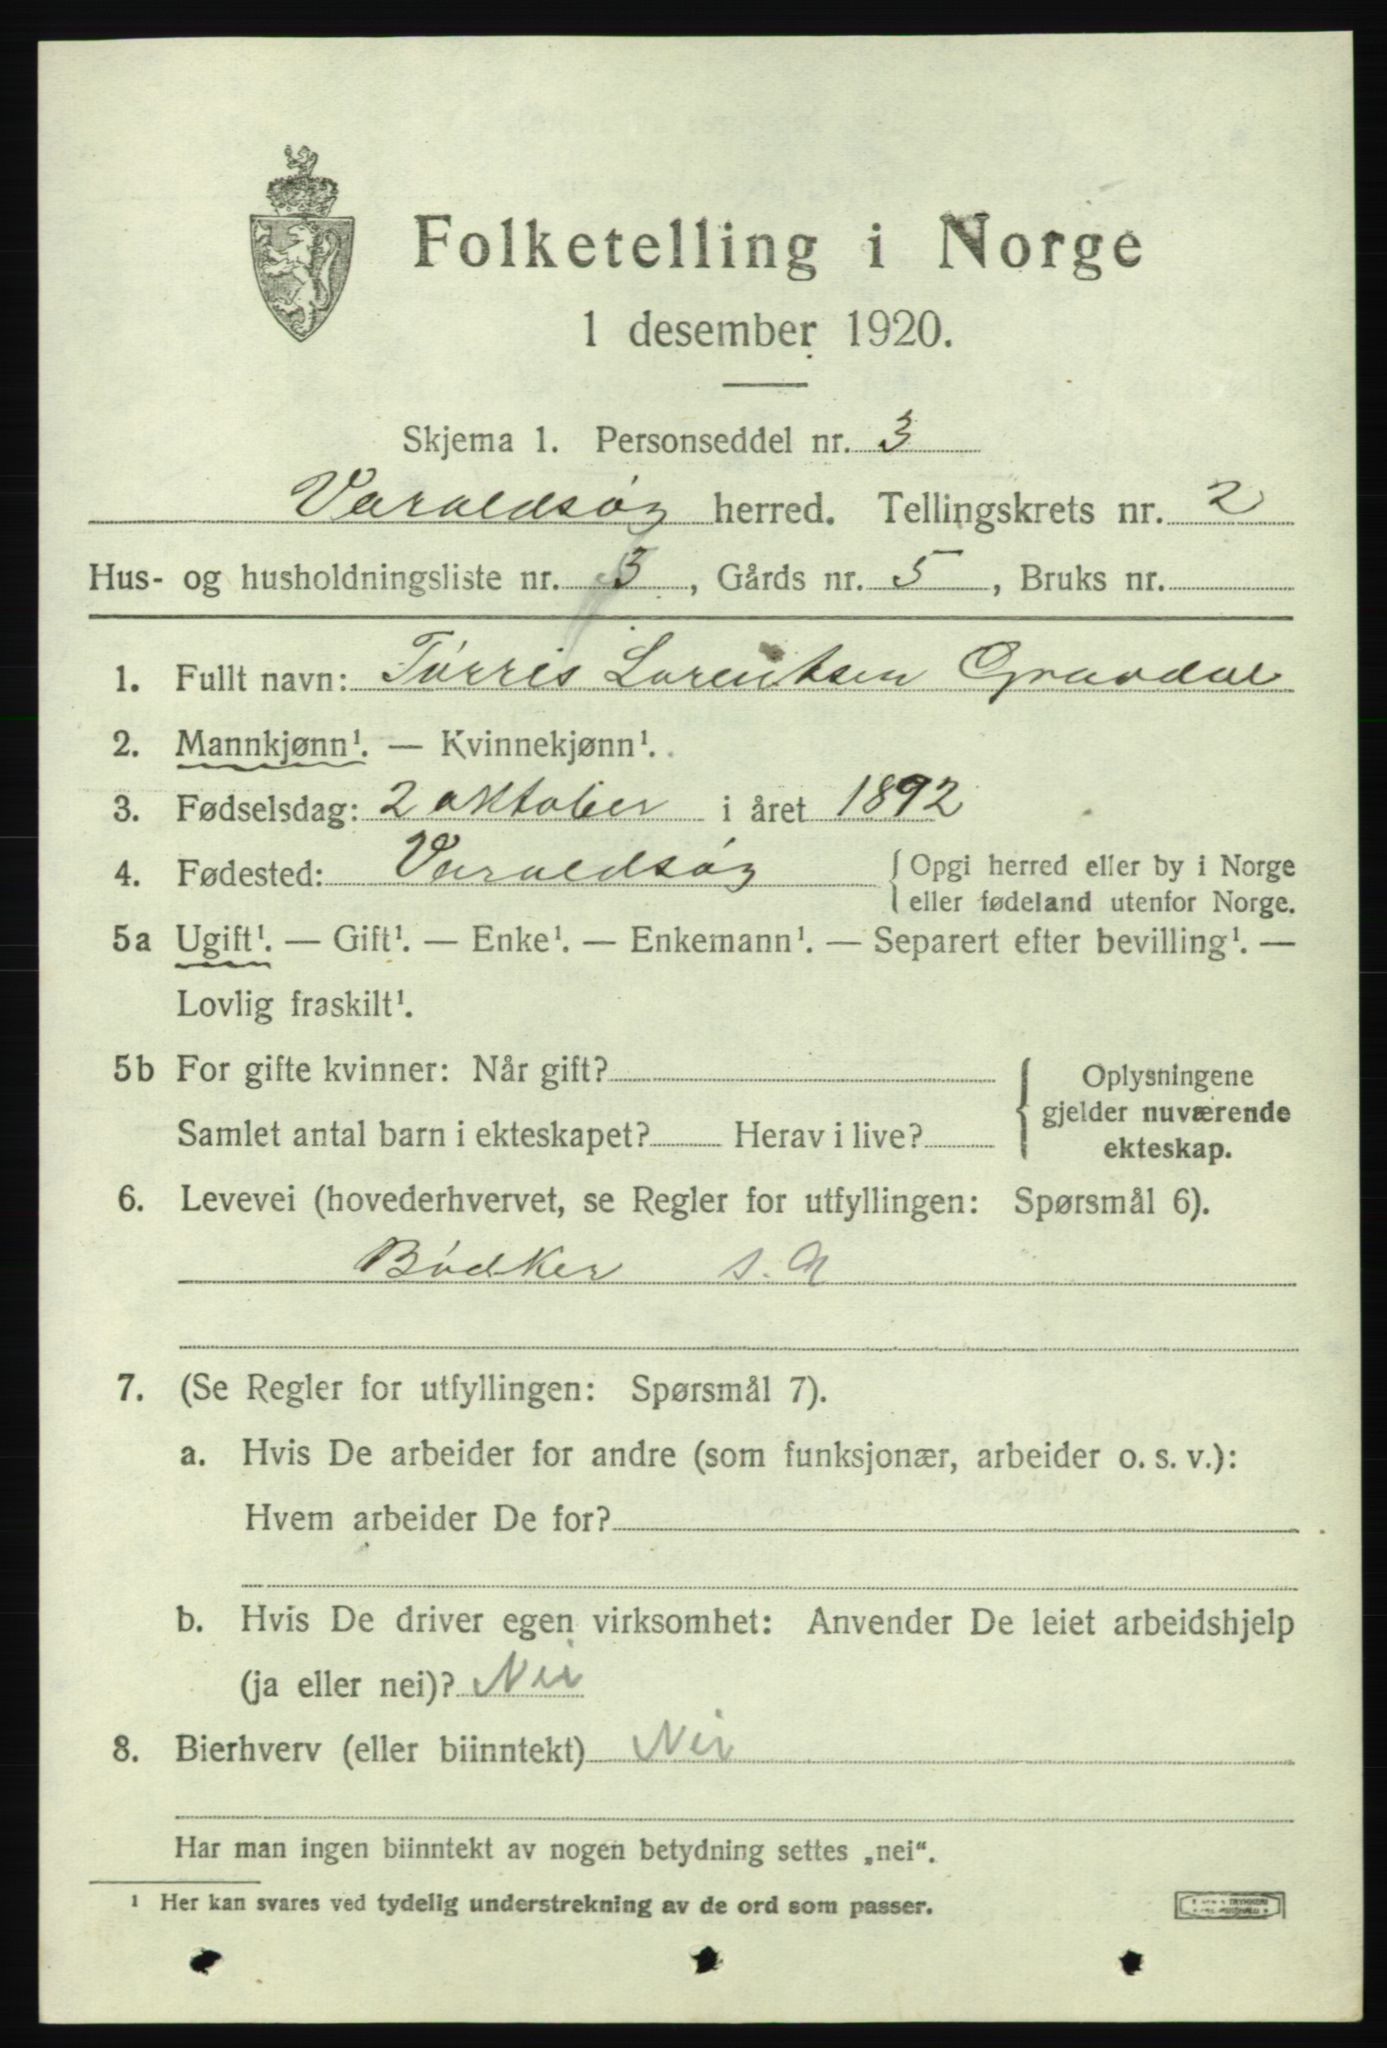 Folketelling i Norge
1 desember 1920.
Skjema 1. Personseddel nr. 3
Varaldsøy herred. Tellingskrets nr. 2
Hus- og husholdningsliste nr. 3, Gårds nr. 5, Bruks nr.
1. Fullt navn: Tørris Lorentsen Gravdal
2. Mannkjønn¹. — Kvinnekjønn¹.
3. Fødselsdag: 2 oktober i året 1892
4. Fødested: Varaldsøy { Opgi herred eller by i Norge
eller fødeland utenfor Norge.
5a Ugift¹. — Gift¹. — Enke¹. — Enkemann¹. — Separert efter bevilling¹. —
Lovlig fraskilt¹.
5b For gifte kvinner: Når gift? { Oplysningene
gjelder nuværende
Samlet antal barn i ekteskapet? Herav i live? ekteskap.
6. Levevei (hovederhvervet, se Regler for utfyllingen: Spørsmål 6).
Bødker s.
7. (Se Regler for utfyllingen: Spørsmål 7).
a. Hvis De arbeider for andre (som funksjonær, arbeider o. s. v.):
Hvem arbeider De for?
b. Hvis De driver egen virksomhet: Anvender De leiet arbeidshjelp
(ja eller nei)? Nei
8. Bierhverv (eller biinntekt) Nei
Har man ingen biinntekt av nogen betydning settes „nei“.
¹ Her kan svares ved tydelig understrekning av de ord som passer.